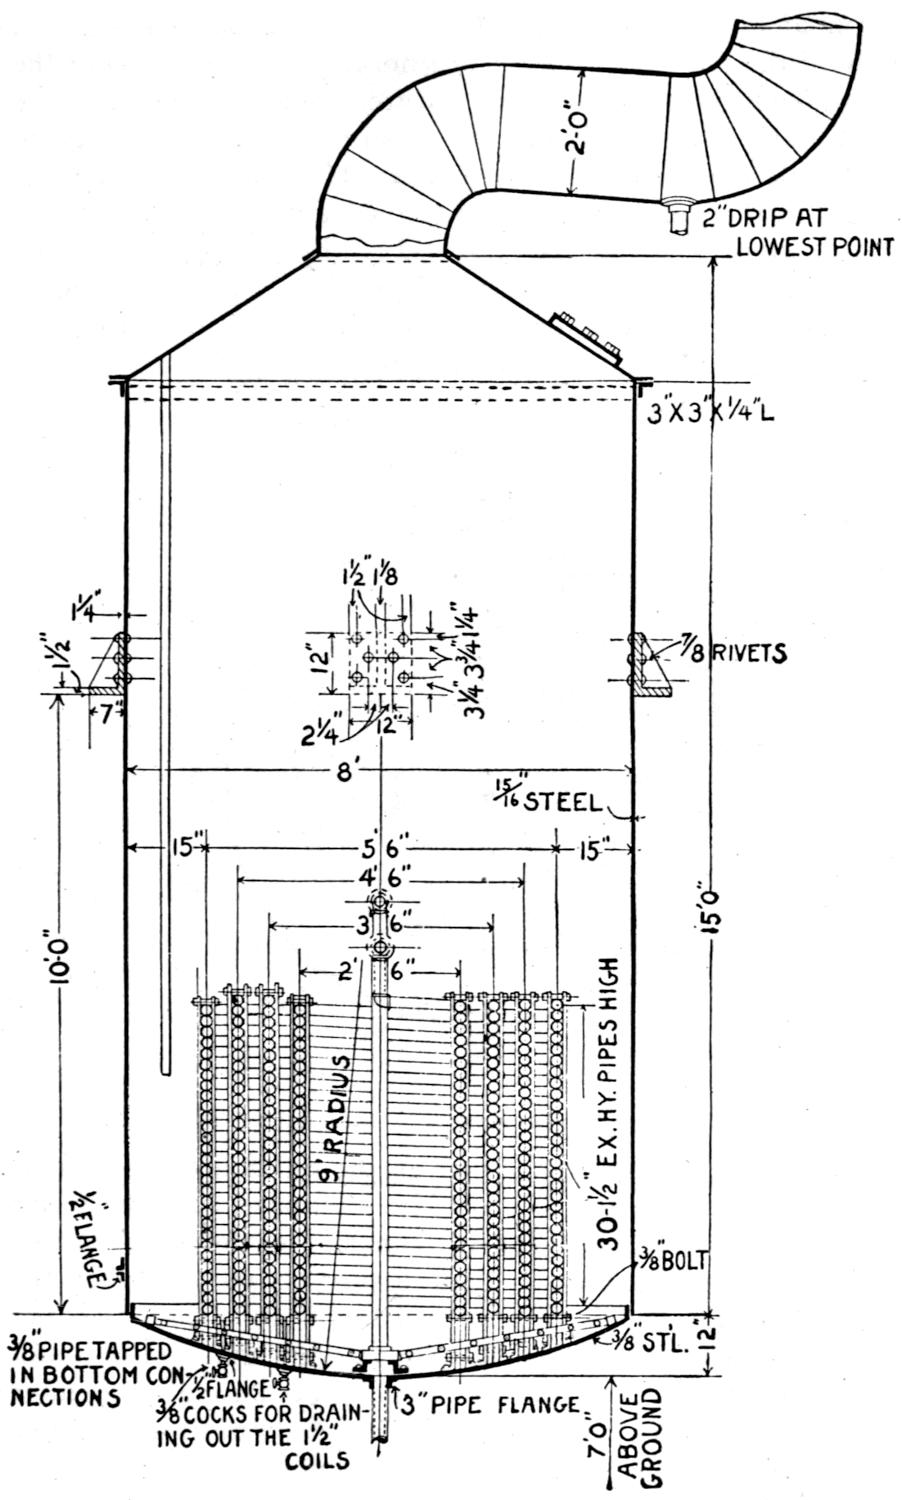 2'-0"
2" DRIP AT
LOWEST POINT
3" X 3" X 1/4" L
1 1/2" 1 1/8
1 1/4"
1 1/2"
7"
12"
1 1/4"
3 3/4"
3 1/4"
2 1/4"
12"
7/8 RIVETS
8'
15/16" STEEL
15"
5' 6"
15"
4' 6"
3' 6"
2' 6"
10'-0"
15'0"
9' RADIUS
30-1 1/2" EX. HY. PIPES HIGH
1/2" FLANGE
3/8" BOLT
3/8" ST'L.
12"
3/8" PIPE TAPPED
IN BOTTOM CON-
NECTIONS
1/2" FLANGE
3/8" COCKS FOR DRAIN-
ING OUT THE 1 1/2"
COILS
3" PIPE FLANGE
7'0"
ABOVE
GROUND